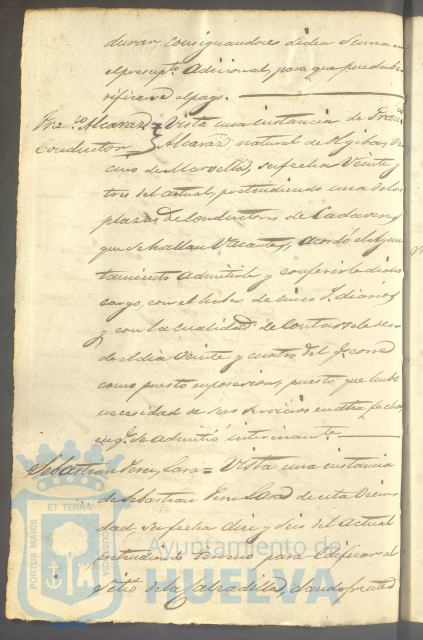 durar, consignandose dicha suma en
el presupto. Adicional, para que pueda ve-
rificarse el pago.
Franco. Alcaraz = Vista una instancia de Franco.
Conductor Alcaraz natural de Vecino
de su fecha Veinte y
tres del actual, pretendiendo una de las
plazas de Conductores de Cadaveres
que se hallan Vacantes, acordó el Ayun-
tamiento admitirle y conferirle dicho
cargo, con el haber de cinco rs. diarios
y con la cualidad de des-
de el dia Veinte y cuatro del q. corre
como puesto en posesion, puesto que hubo
necesidad de sus servicios en dha fecha,
en q. se admitió interinamte.
Sebastian Perez Lara = Vista una instancia
de Sebastian Perez Lara de esta Vecin-
dad, su fecha diez y seis del Actual
pretendiendo terreno para edificar al
Sitio de la Calzadilla, dando frente
PORTUS MARIS
ET TERRAE
CUSTODIA
Ayuntamiento de
HUELVA